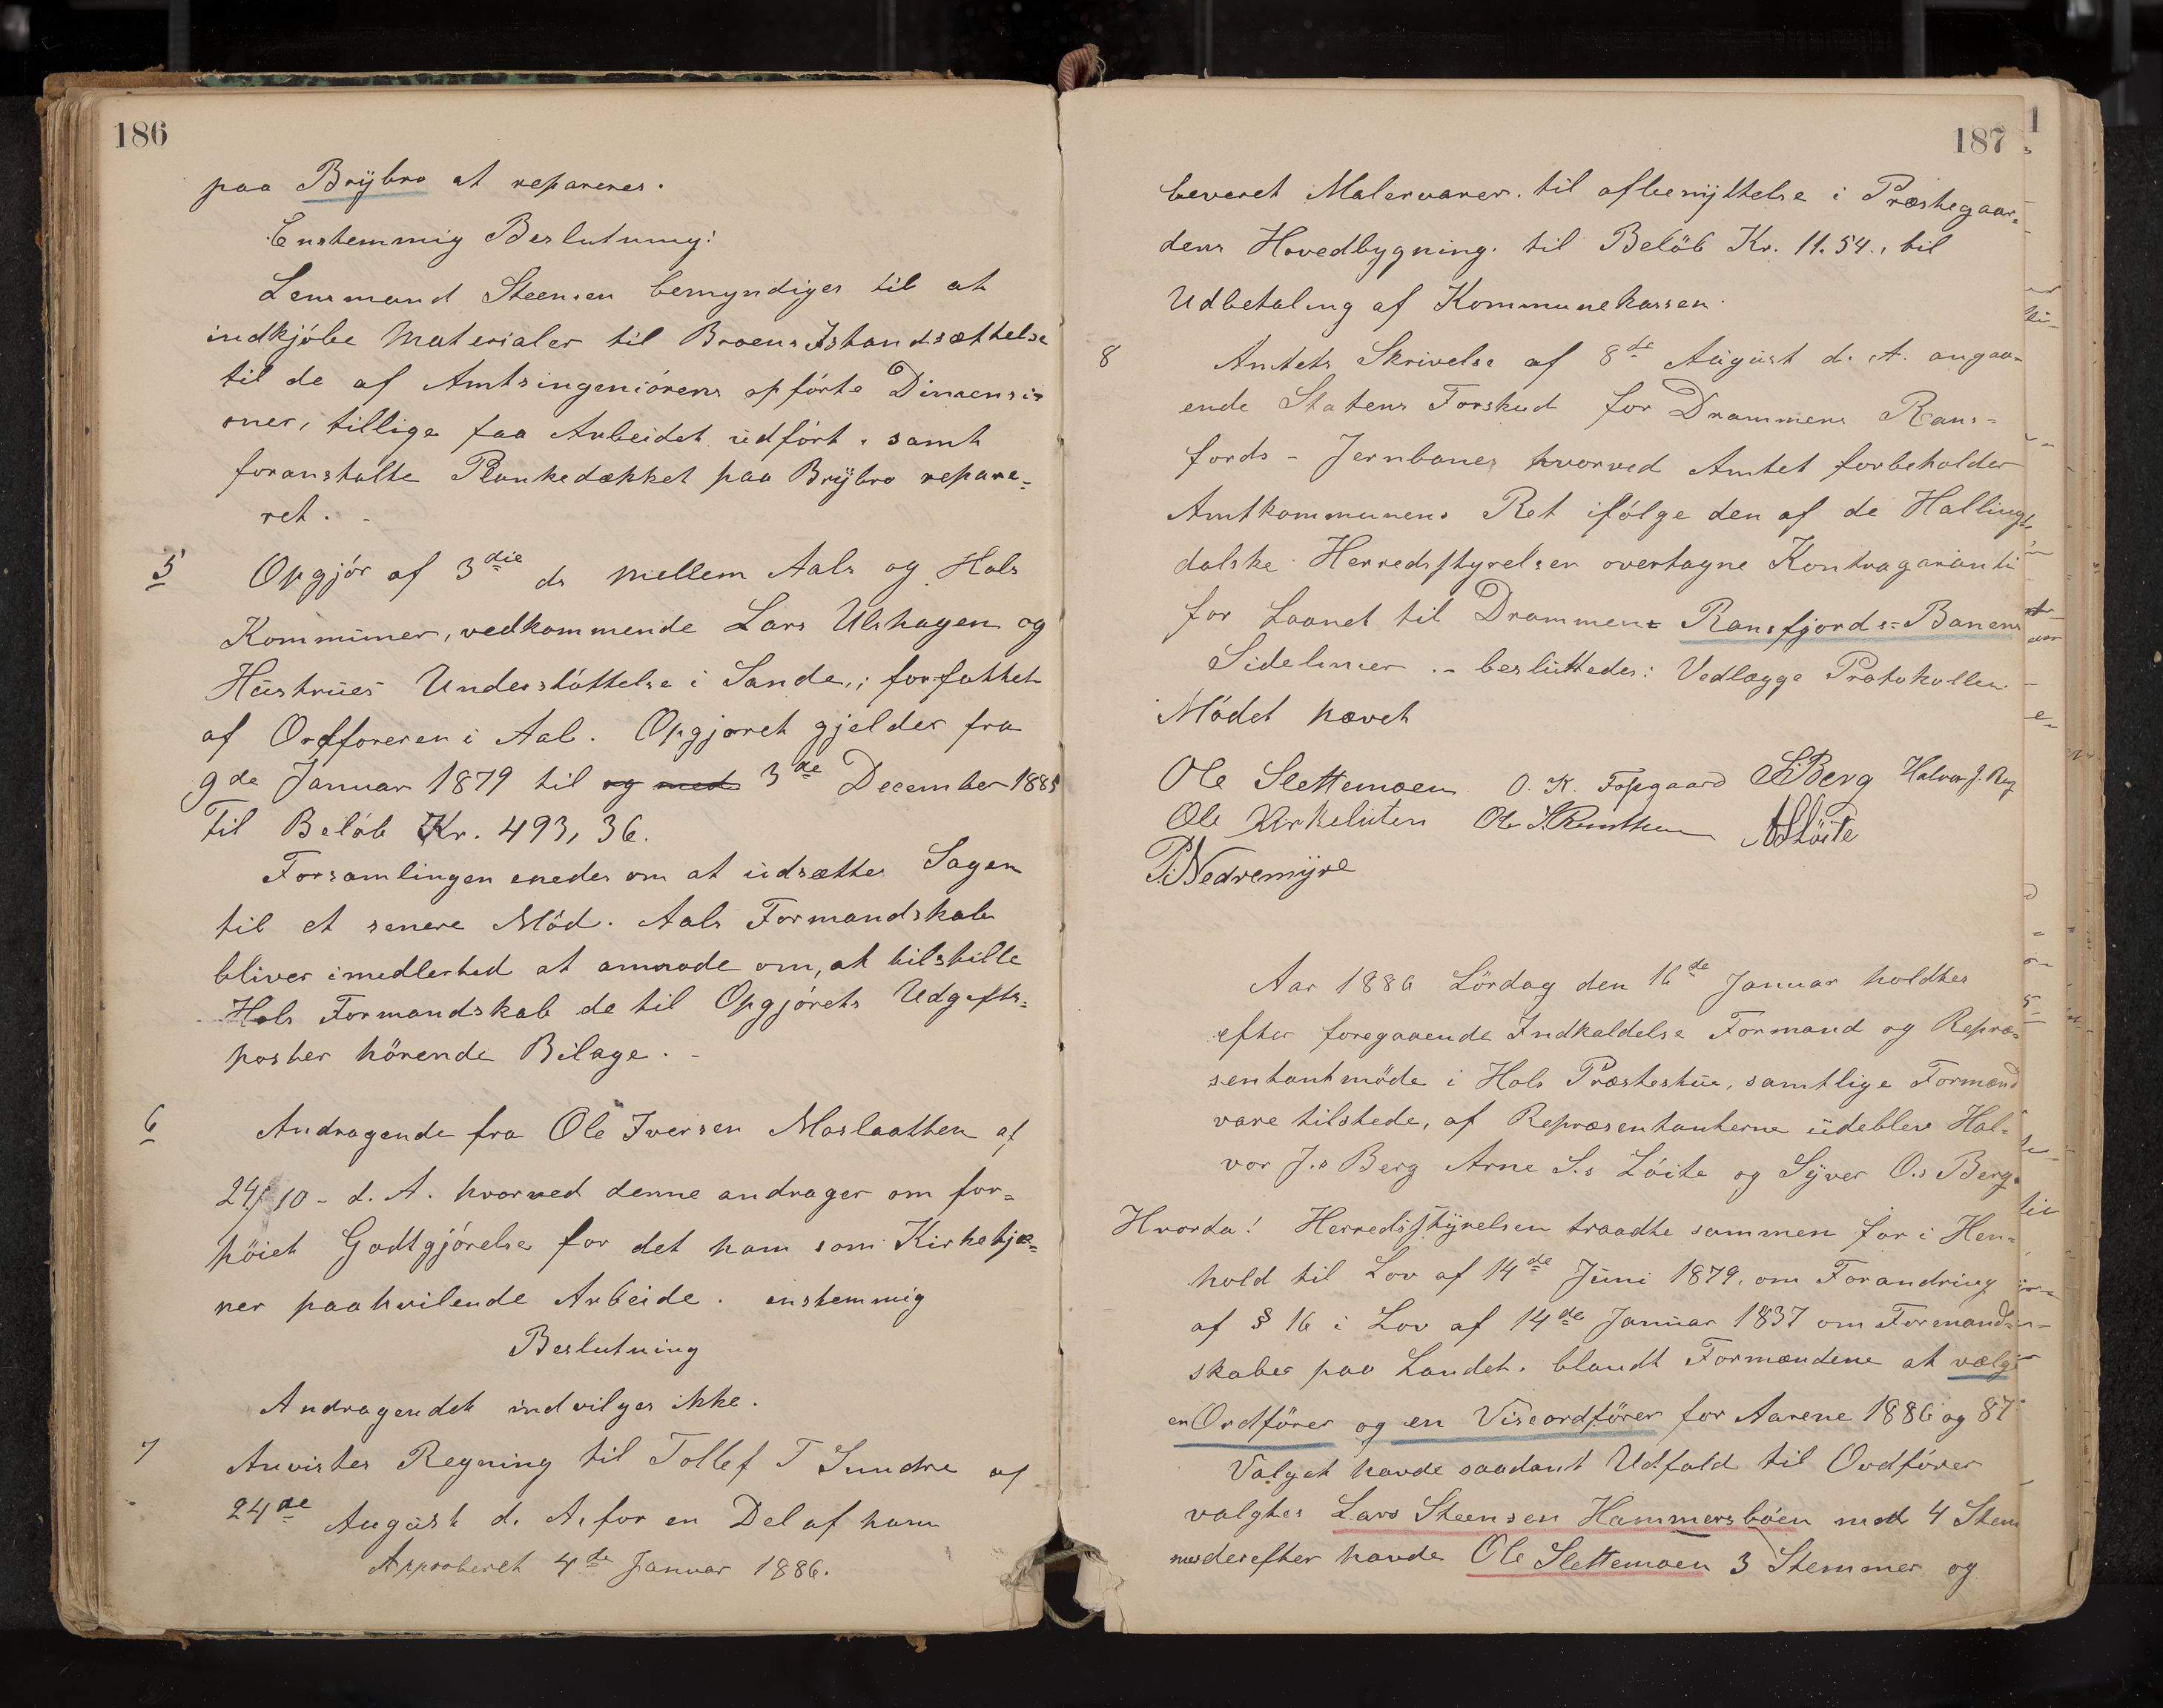 186
paa Brÿbro at repareres.
Enstemmig Beslutning:
Lensmand Steensen bemyndiges til at
indkjöbe Materialer til Broens Istandsættelse
til de af Amtsingeniörens opförte Dimensi-
oner, tillige faa Arbeidet udfört, samt
foranstalte Plankedækket paa Brÿbro repare-
ret. -
5 Opgjör af 3die ds mellem Aals og Hols
Kommuner, vedkommende Lars Ulshagen og
Hustrues Understöttelse i Sande, forfattet
af Ordföreren i Aal. Opgjöret gjelder fra
9de Januar 1879 til og med 3de December 1885
Til Belöb Kr. 493,36.
Forsamlingen enedes om at udsætte Sagen
til et senere Möd. Aals Formandskab
bliver imedlertid at anmode om, at tilstille
Hols Formandskab de til Opgjörets Udgifts-
poster hörende Bilage. -
6 Andragende fra Ole Iversen Moslaatten af
24/10 - d. A. hvorved denne andrager om for-
höiet Godtgjörelse for det ham som Kirketje-
ner paahvilende Arbeide. enstemmig
Beslutning
Andragendet indvilges ikke.
7 Anvistes Regning til Tollef T Sundre af
24de August d. A. for en Del af ham
Approberet 4de Januar 1886.
187
leveret Malervarer til afbenyttelse i Præstegaar-
dens Hovedbygning. til Belöb Kr. 11.54., til
Udbetaling af Kommunekassen.
8 Amtets Skrivelse af 8de August d. A. angaa-
ende Statens Forskud for Drammens Rans-
fords - Jernbane, hvorved Amtet forbeholder
Amtkommunens Ret ifölge den af de Hallings-
dalske Herredsstyrelser overtagne Kontragaranti
for Laanet til Drammens Ransfjords-Banens
Sidelinier .- besluttedes: Vedlægge Protokollen.
Mödet hævet
Ole Slettemoen O. K. Fopgaard SBerg Halvor J. Berg
Ole Villand
P. Nedremÿre
Aar 1886 Lördag den 16de Januar holdtes
efter foregaaende Indkaldelse Formand og Repræ-
sentantmöde i Hols Præstestue, samtlige Formænd
vare tilstede, af Repræsentanterne udeblev Hal-
vor J.s Berg Arne S.s Löite og Syver O.s Berg.
Hvorda! Herredsstyrelsen traadte sammen for i Hen-
hold til Lov af 14de Juni 1879. om Forandring
af § 16 i Lov af 14de Januar 1837 om Formand-
skaber paa Landet. blandt Formændene at vælge
en Ordförer og en Viseordförer for Aarene 1886 og 87
Valget havde saadant Udfald til Ordförer
valgtes Lars Steensen Hammersböen med 4 Stem
mer derefter havde Ole Slettemoen 3 Stemmer og